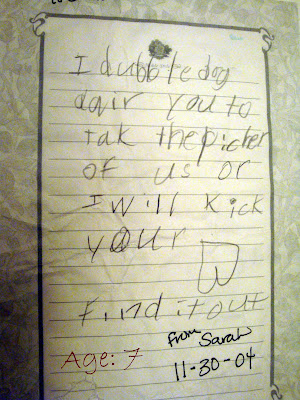 I dubble dog
dair you to
tak the picher
of us or
I will kick
your
Find it out
from Sarah
Age: 7
11-30-04